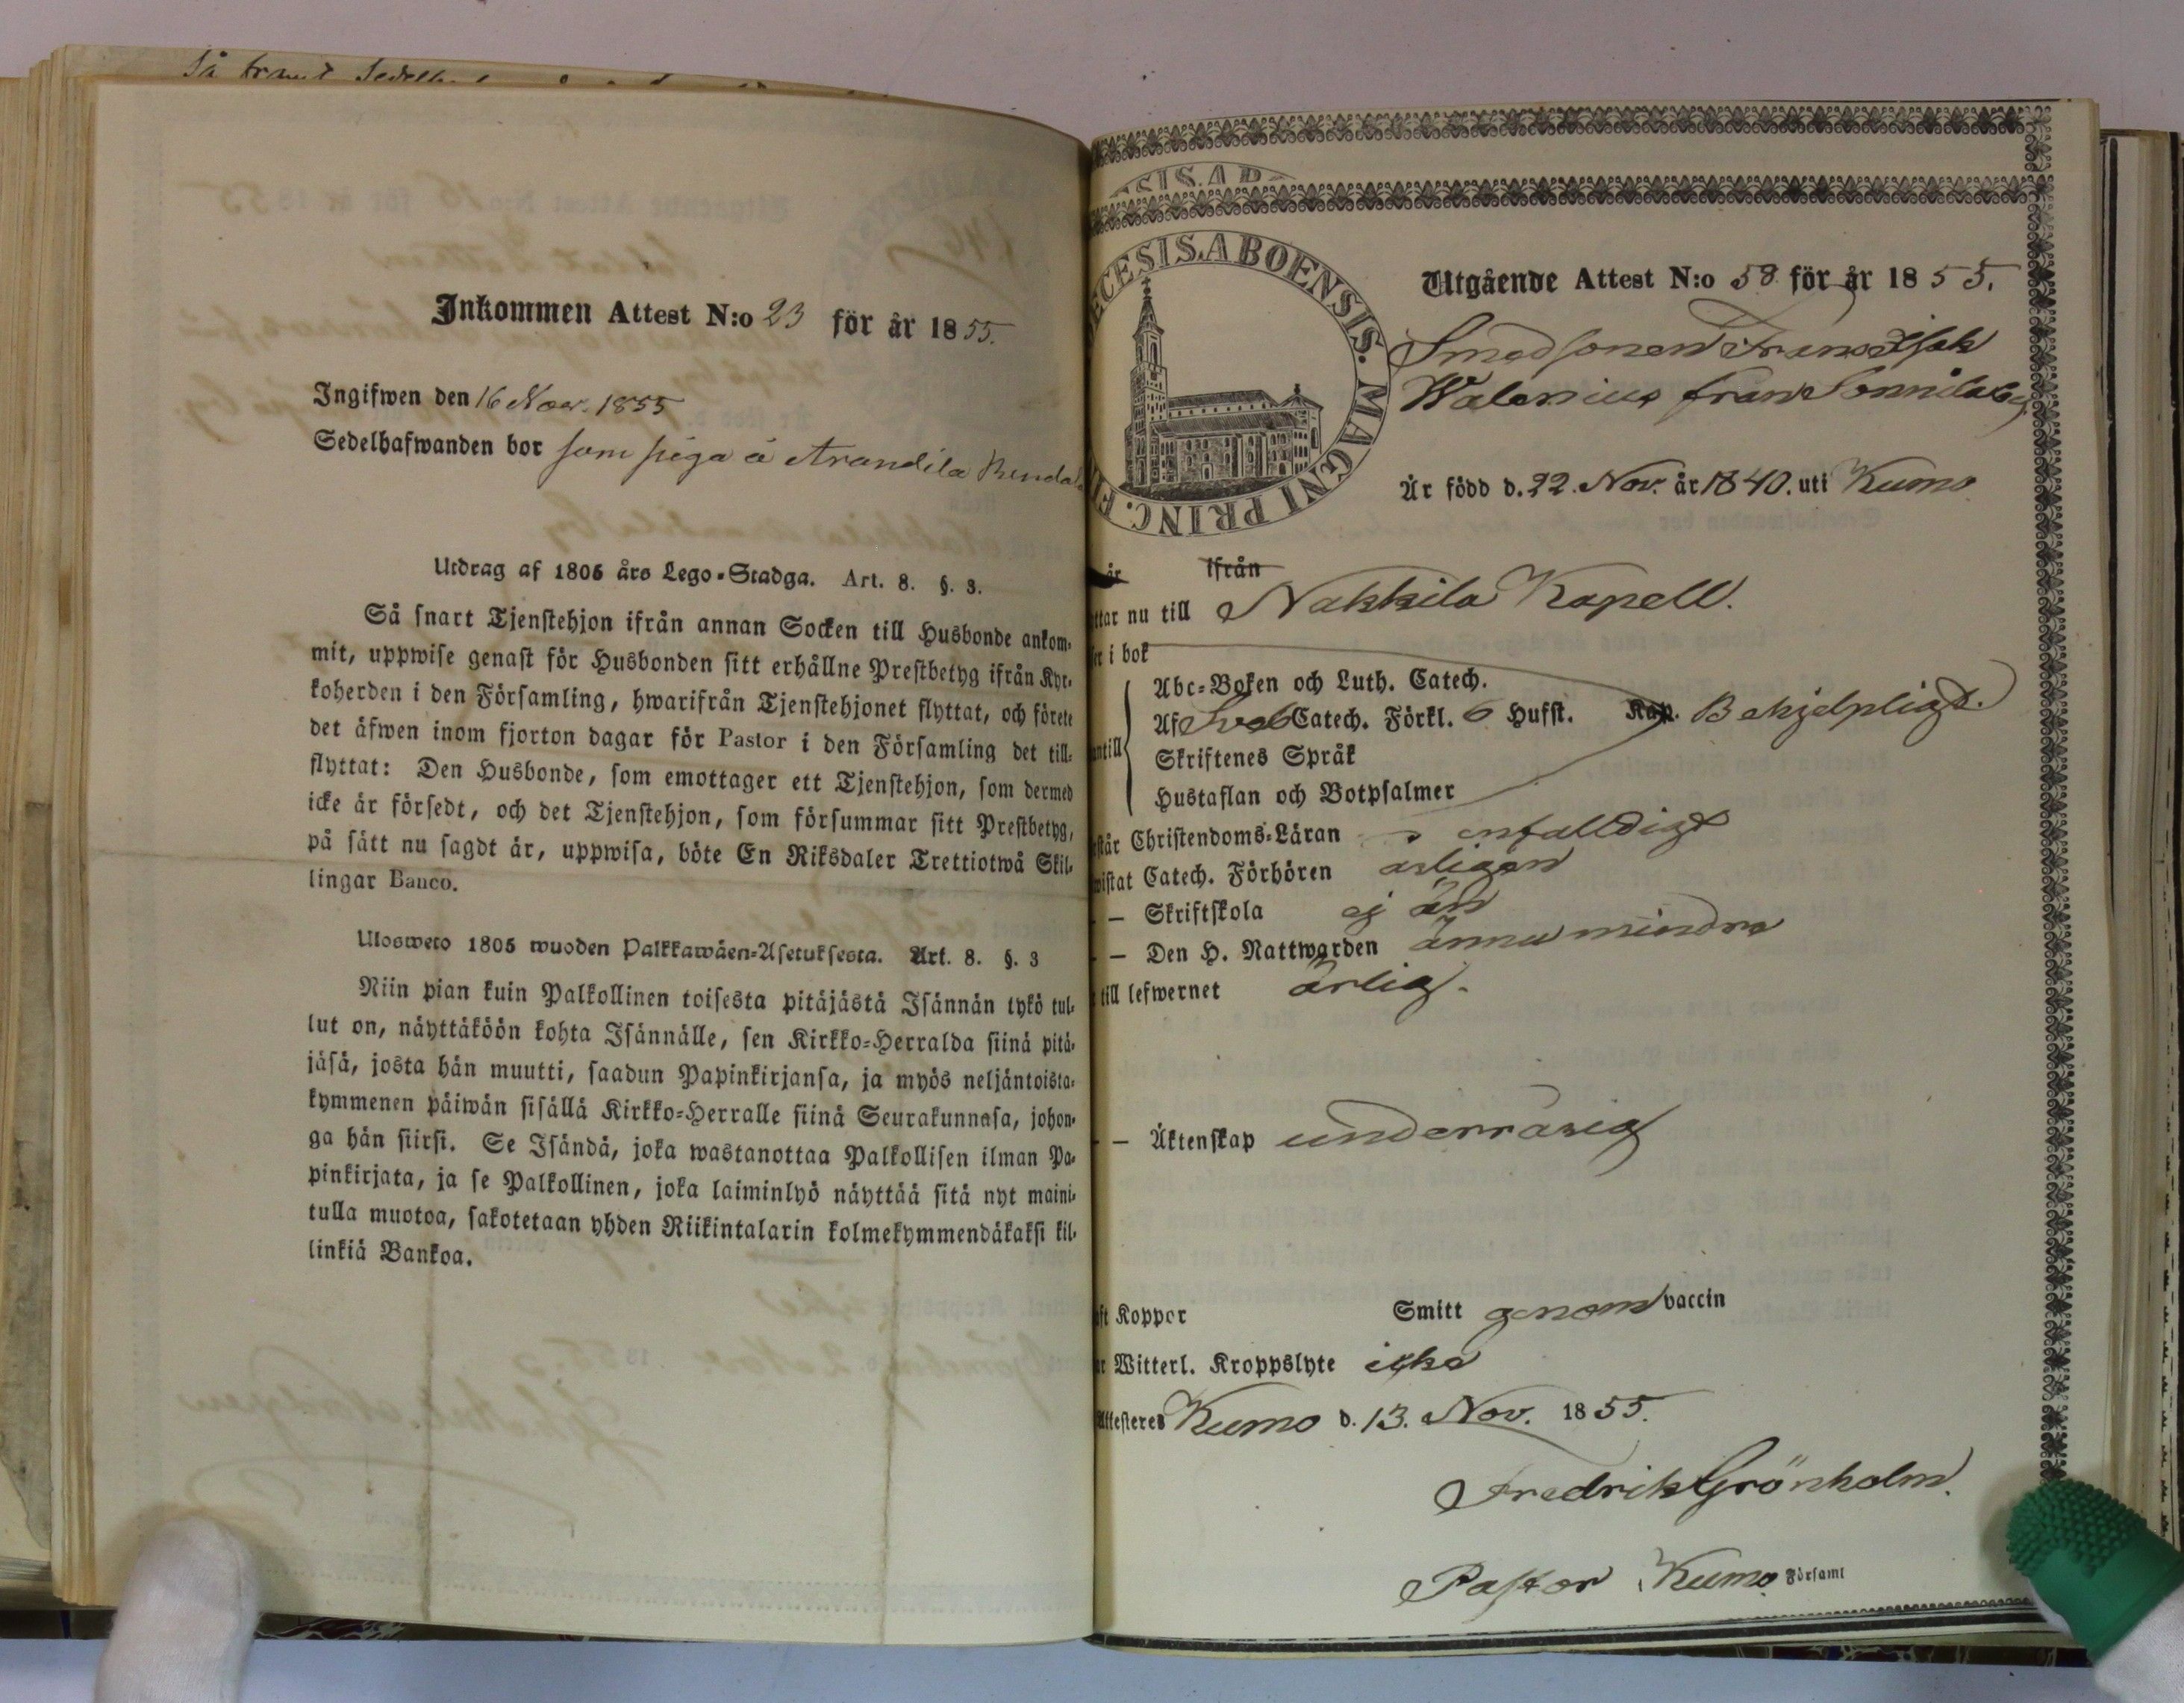 Så snart Sedelh
Inkommen Attest N:o 23 för år 1855.
Ingifwen den 16 Nov. 1855
Sedelhafwanden bor som piga å Arandila
Utdrag af 1805 års Lego-Stadga. Art. 8. §. 3.
Så snart Tjenstehjon ifrån annan Socken till Husbonde ankom-
mit, uppwise genast för Husbonden sitt erhållne Prestbetyg ifrån Kyr-
koherden i den Församling, hwarifrån Tjenstehjonet flyttat, och förete
det äfwen inom fjorton dagar för Pastor i den Församling det till-
flyttat: Den Husbonde, som emottager ett Tjenstehjon, som dermed
icke är försedt, och det Tjenstehjon, som försummar sitt Prestbetyg,
på sätt nu sagdt är, uppwisa, böte En Riksdaler Trettiotwå Skil-
lingar Banco.
Ulosweto 1805 wuoden Palkkawäen-Asetuksesta. Art. 8. §. 3
Niin pian kuin Palkollinen toisesta pitäjästä Isännän tykö tul-
lut on, näyttäköön kohta Isännälle, sen Kirkko-Herralda siinä pitä-
jäsä, josta hän muutti, saadun Papinkirjansa, ja myös neljäntoista-
kymmenen päiwän sisällä Kirkko-Herralle siinä Seurakunnasa, johon-
ga hän siirsi. Se Isändä, joka wastanottaa Palkollisen ilman Pa-
pinkirjata, ja se Palkollinen, joka laiminlyö näyttää sitä nyt maini-
tulla muotoa, sakotetaan yhden Riikintalarin kolmekymmendäkaksi kil-
linkiä Bankoa.
ECESIS.ABOENSIS. MAGNI PRINC. FI
Utgående Attest N:o 58 för år 1855.
Smedsonen Frans Isak
Walenius från Sonnila by
Är född d. 22. Nov. år 1840. uti Kumo
är ifrån
ttar nu till Nakkila Kapell.
er i bok
Abc-Boken och Luth. Catech.
Af Sveb Catech. Förkl. 6 Hufst. Kap. Behjelpligt.
antill Skriftenes Språk
Hustaflan och Botpsalmer
står Christendoms-Läran enfalldigt
wistat Catech. Förhören årligen
– – Skriftskola ej än
– – Den H. Nattwarden ännu mindre
till lefwernet ärlig.
– – Äktenskap underårig
aft Koppor Smitt genom vaccin
r Witterl. Kroppslyte icke
Attesteres Kumo d. 13. Nov. 1855.
Fredrik Grönholm.
Pastor i Kumo Församl